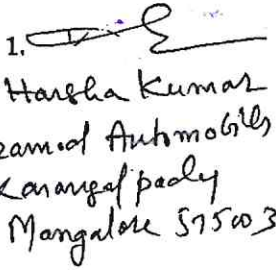 1.
Harsha Kumar
ramod Automobiles
Karangalpady
Mangalore 575003